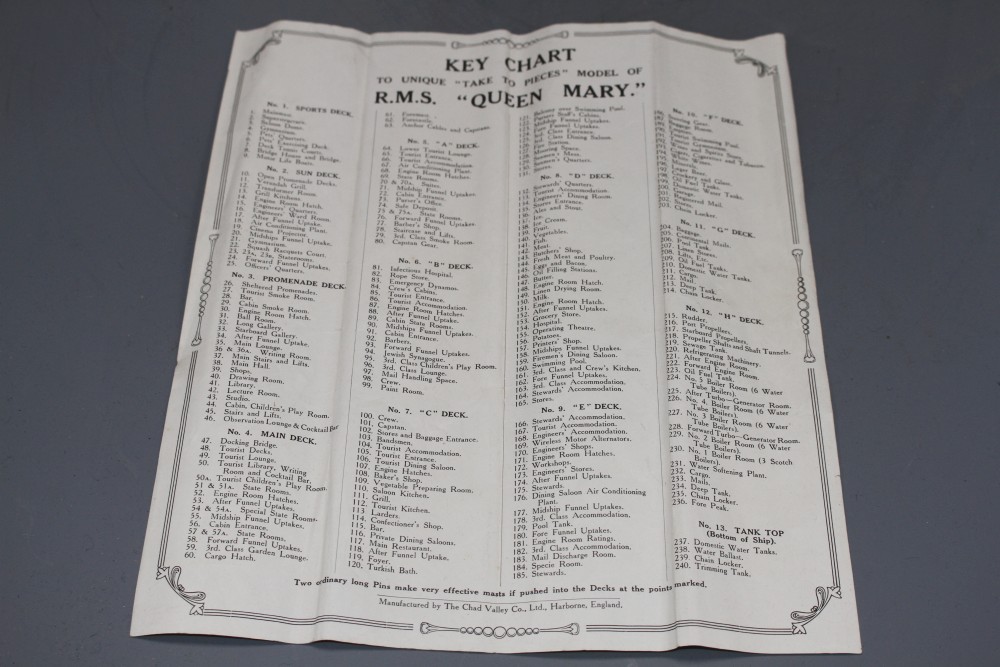 KEY CHART
TO UNIQUE "TAKE TO PIECES" MODEL OF
R.M.S. "QUEEN MARY."
No. 1. SPORTS DECK.
1. Maintop.
2. Superstructure.
3. Saloon Dome.
4. Gymnasium.
5. Pets' Quarters.
6. Dogs' Exercising Deck.
7. Deck Tennis Courts.
8. Bridge House and Bridge.
9. Motor Life Boats.
No. 2. SUN DECK.
10. Open Promenade Decks.
11. Verandah Grill.
12. Transformer Room.
13. Grill Kitchens.
14. Engine Room Hatch.
15. Engineers' Quarters.
16. Engineers' Ward Room.
17. After Funnel Uptake.
18. Air Conditioning Plant.
19. Cinema Projector.
20. Midships Funnel Uptake.
21. Gymnasium.
22. Squash Racquets Court.
23. 23A, 23B. Staterooms.
24. Forward Funnel Uptakes.
25. Officers' Quarters.
No. 3. PROMENADE DECK
26. Sheltered Promenades.
27. Tourist Smoke Room.
28. Bar.
29. Cabin Smoke Room.
30. Engine Room Hatch.
31. Ball Room.
32. Long Gallery.
33. Starboard Gallery.
34. After Funnel Uptake.
35. Main Lounge.
36 & 36A. Writing Room.
37. Main Stairs and Lifts.
38. Main Hall.
39. Shops.
40. Drawing Room.
41. Library.
42. Lecture Room.
43. Studio.
44. Cabin, Children's Play Room.
45. Stairs and Lifts.
46. Observation Lounge & Cocktail Bar
No. 4. MAIN DECK.
47. Docking Bridge.
48. Tourist Decks.
49. Tourist Lounge.
50. Tourist Library, Writing
Room and Cocktail Bar.
50A. Tourist Children's Play Room.
51 & 51A. State Rooms.
52. Engine Room Hatches.
53. After Funnel Uptakes.
54 & 54A. Special State Rooms.
55. Midship Funnel Uptakes.
56. Cabin Entrance.
57 & 57A. State Rooms.
58. Forward Funnel Uptakes.
59. 3rd. Class Garden Lounge.
60. Cargo Hatch.
61. Foremast.
62. Forewells.
63. Anchor Cables and Capstan.
No. 5. "A" DECK.
64. Lower Tourist Lounge.
65. Tourist Entrance.
66. Tourist Accommodation.
67. Air Conditioning Plant.
68. Engine Room Hatches.
69. State Rooms.
70 & 70A. Suites.
71. Midship Funnel Uptakes.
72. Cabin Entrance.
73. Purser's Office.
74. Safe Deposit.
75 & 75A. State Rooms.
76. Forward Funnel Uptakes.
77. Barber's Shop.
78. Staircase and Lifts.
79. 3rd. Class Smoke Room.
80. Capstan Gear.
No. 6. "B" DECK.
81. Infectious Hospital.
82. Rope Store.
83. Emergency Dynamos.
84. Crew's Cabins.
85. Tourist Entrance.
86. Tourist Accommodation.
87. Engine Room Hatches.
88. After Funnel Uptake.
89. Cabin State Rooms.
90. Midships Funnel Uptakes.
91. Cabin Entrance.
92. Barbers.
93. Forward Funnel Uptakes.
94. Jewish Synagogue.
95. 3rd. Class Children's Play Room
96. 3rd. Class Lounge.
97. Mail Handling Space.
98. Crew.
99. Paint Room.
No. 7. "C" DECK.
100. Crew.
101. Capstan.
102. Stores and Baggage Entrance.
103. Bandsmen.
104. Tourist Accommodation.
105. Tourist Entrance.
106. Tourist Dining Saloon.
107. Engine Hatches.
108. Baker's Shop.
109. Vegetable Preparing Room.
110. Saloon Kitchen.
111. Grill.
112. Tourist Kitchen.
113. Larders.
114. Confectioner's Shop.
115. Bar.
116. Private Dining Saloons.
117. Main Restaurant.
118. After Funnel Uptake.
119. Foyer.
120. Turkish Bath.
121. Balcony over Swimming Pool.
122. Pursers Staff's Cabins.
123. Midship Funnel Uptakes.
124. Fore Funnel Uptakes.
125. 3rd. Class Entrance.
126. 3rd. Class Dining Saloon.
126. Fire Station.
127. Mooring Space.
128. Seamen's Mess.
129. Seamen's Quarters.
131. Stores.
No. 8. "D" DECK.
132. Stewards' Quarters.
133. Tourist Accommodation.
134. Engineers' Dining Room.
135. Stores Entrance.
136. Ales and Stout.
137. Ice.
138. Ice Cream.
138. Fruit.
139. Vegetables.
140. Fish.
141. Meat.
142. Butchers' Shop.
143. Fresh Meat and Poultry.
144. Eggs and Bacon.
145. Oil Filling Stations.
146. Butter.
147. Engine Room Hatch.
148. Linen Drying Room.
149. Milk.
150. Engine Room Hatch.
151. After Funnel Uptakes.
152. Grocery Store.
153. Hospital.
154. Operating Theatre.
155. Potatoes.
156. Printers' Shop.
157. Midships Funnel Uptakes.
158. Firemen's Dining Saloon.
159. Swimming Pool.
160. 3rd. Class and Crew's Kitchen.
161. Fore Funnel Uptakes.
162. 3rd. Class Accommodation.
163. Stewards' Accommodation.
165. Stores.
No. 9. "E" DECK.
166. Stewards' Accommodation.
167. Tourist Accommodation.
168. Engineers' Accommodation.
169. Wireless Motor Alternators.
170. Engineers' Shops.
171. Engine Room Hatches.
172. Workshops.
173. Engineers' Stores.
174. After Funnel Uptakes.
175. Stewards.
176. Dining Saloon Air Conditioning
Plant.
177. Midship Funnel Uptakes.
178. 3rd. Class Accommodation.
179. Pool Tank.
180. Fore Funnel Uptakes.
181. Engine Room Ratings.
182. 3rd. Class Accommodation.
183. Mail Discharge Room.
184. Specie Room.
185. Stewards.
No. 10. "F" DECK.
Steering Gear.
Swimming Pool.
Wines and Spirits
Wines, Cigars and Tobacco
Lager Beer.
China and Glass.
Oil Fuel Tanks.
Domestic Water Tanks.
201. Garage.
Registered Mail.
202. Stores.
203. Chain Locker.
No. 11. "G" DECK.
204. Baggage.
205. Continental Mails.
206. Pool Tank.
207. Linen Stores.
208. Lifts, Etc.
209. Oil Fuel Tanks.
210. Domestic Water Tanks.
211. Cargo.
212. Mail.
213. Deep Tank.
214. Chain Locker.
No. 12. "H" DECK.
215. Rudder.
216. Port Propellers.
217. Starboard Propellers.
218. Propeller Shafts and Shaft Tunnels.
219. Sewage Tank.
220. Refrigerating Machinery.
221. After Engine Room.
222. Forward Engine Room.
223. Oil Fuel Tank.
224. No. 5 Boiler Room (6 Water
Tube Boilers).
225. After Turbo-Generator Room.
226. No. 4 Boiler Room (6 Water
Tube Boilers).
227. No. 3 Boiler Room (6 Water
Tube Boilers).
228. Forward Turbo-Generator Room.
229. No. 2 Boiler Room (6 Water
Tube Boilers).
230. No. 1 Boiler Room (3 Scotch
Boilers).
231. Water Softening Plant.
232. Cargo.
233. Mails.
234. Deep Tank.
235. Chain Locker.
236. Fore Peak.
No. 13. TANK TOP
(Bottom of Ship).
237. Domestic Water Tanks.
238. Water Ballast.
239. Chain Locker.
240. Trimming Tank.
Two ordinary long Pins make very effective masts if pushed into the Decks at the points marked.
Manufactured by The Chad Valley Co., Ltd., Harborne, England.